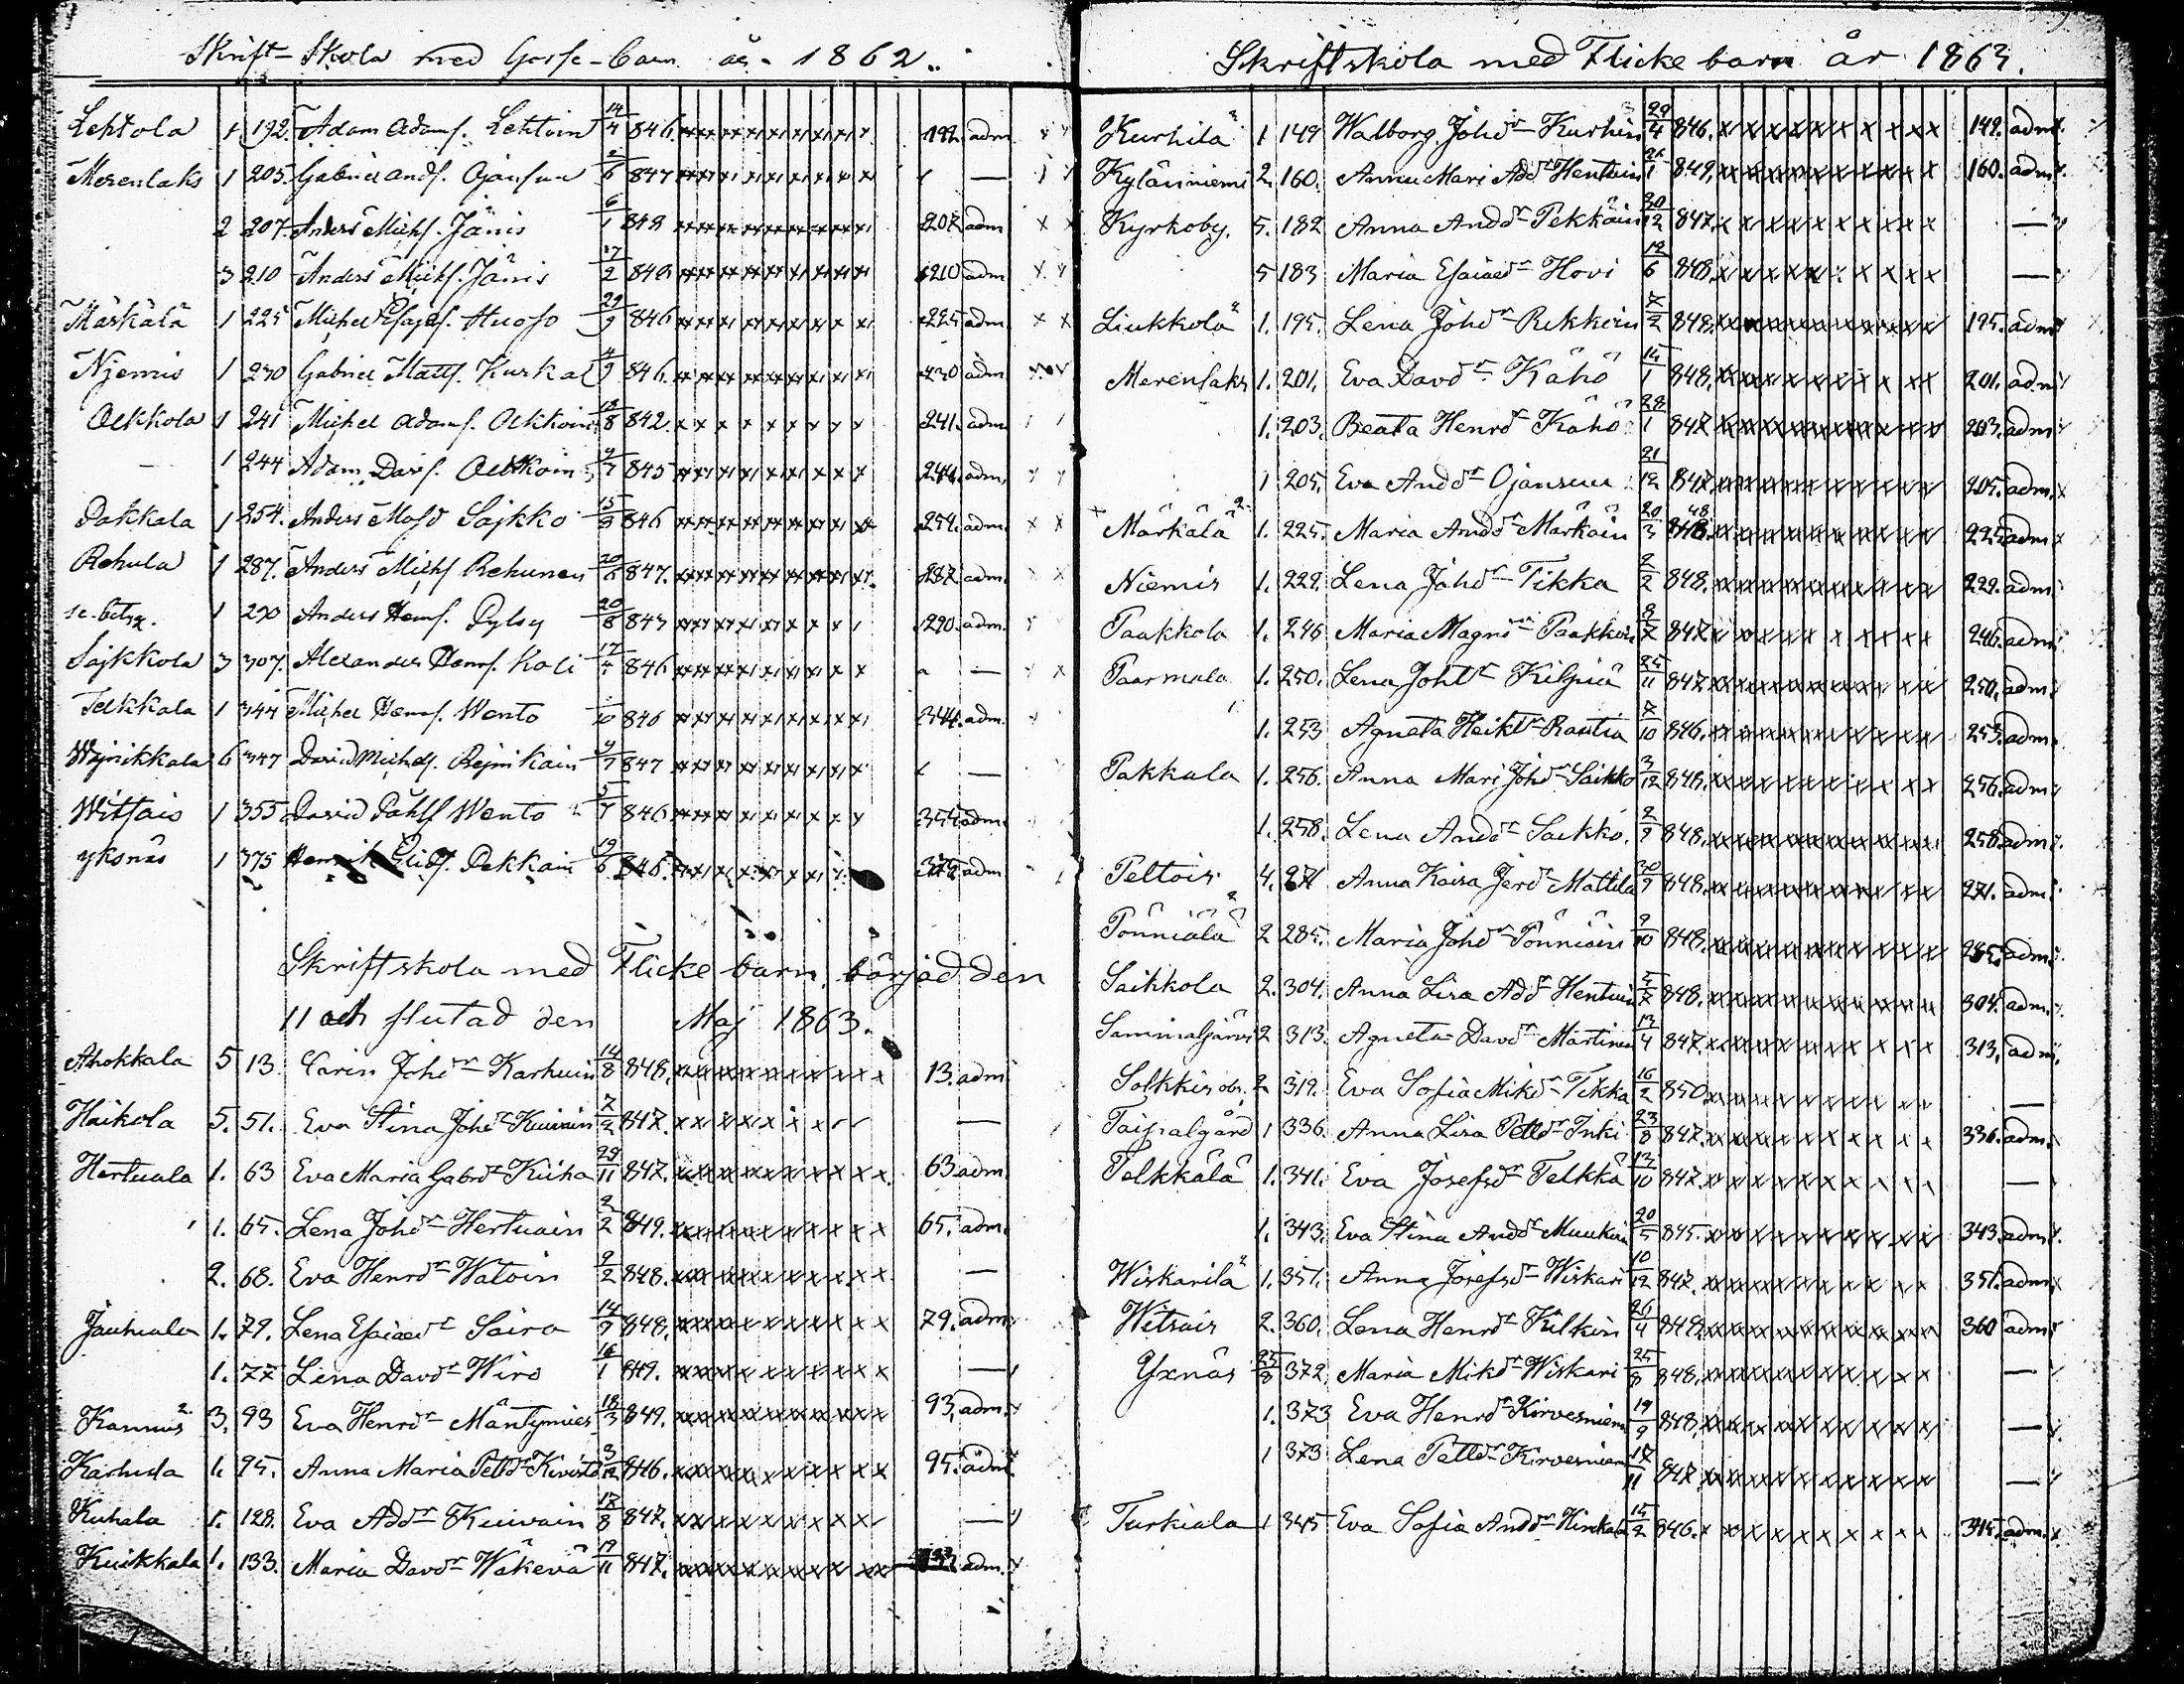 Skrift-Skola med Gosse-barn år 1862.
Lehtola 1 192. Adam Adamss. Lehtoin 14/4 846. 192. adm
Merenlaks 1 205. Gabriel Ands. Ojansuu 847 —
2 207. Anders Michs. Jänis 6/1 848 207 adm
3 210 Anders Michs. Jänis 17/2 848 210 adm
Märkälä 1 225 Michel Esajas. Huoso 29/9 846 225 adm
Njemis 1 230 Gabriel Matts. 4/9 846. 230 adm
Oekkola 1 241 Michel Adams. Oekkoin 8 842. 241. adm
— 1 244 Adam Davs. Oekkoin 845 244. adm.
Pakkala 1 254. Anders Sajkko 846 254. adm
Rehula 1 287. Anders Michs Rehunen 847. 287 adm
1 290 Anders Henrs. Pylsy 20/8 843 290. adm.
Sajkkola 3 307. Alexander Henrs. Koli 846 —
Telkkala 1 344 Michel Henrs. Wento 10 846 344. adm.
Wijnikkala 6 347 David Michels. Rejnikain 847 —
Witsais 1 355 David Påhls Wento 846 adm.
yksnäs 1 375 Henrik Pekkain 19/6 846. 375 adm
Skriftskola med Flicke barn, börjad den
11 och slutad den Maj 1863.
Ahokkala 5 13. Carin Johdr Karhuin 14/8 848. 13. adm
Haikola 5. 51. Eva Stina Johdr Kuivain 7/2 847. —
Hertuala 1. 63 Eva Maria Gabrdr Kuiha 29/11 847. 63 adm
1. 65. Lena Johdr Hertuain 2/2 849. 65. adm.
2. 68. Eva Henrdr Watoin 9/2 848. —
Jauhiala 1. 79. Lena Esaiaedr Saira 14/9 848. 79. adm
1. 77 Lena Davdr Wiro 16/1 849. —
Kannus 3. 93 Eva Henrdr Mäntymies 18/3 849. 93. adm.
Karhula 1. 95. Anna Maria Pettdr Kivistö 3/12 846. 95. adm.
Kuhala 1. 128. Eva Addr Kuivain 17/8 847. —
Kuikkala 1. 133. Maria Davdr Wäkevä 17/11 847. 133. adm.
Skriftskola med Flicke barn år 1863.
Kurhila 1 149 Walborg Johdr Kurhin 29/4 846. 149. adm.
Kylänniemi 2. 160. Anna Mari Addr Hentuin 26/1 849. 160. adm.
Kyrkoby. 5. 182 Anna Anddr Pekkäin 20/12 847. —
5 183 Maria Esaiaedr Hovi 12/6 848. —
Liukkola 1. 195. Lena Johdr Rekkoin 7/2 848. 195. adm
Merenlaks 1. 201. Eva Davdr Kähö 14/1 848. 201. adm
1. 203. Beata Henrdr Kähö 28/1 847 203. adm
1 205. Eva Anddr Ojansuu 21/12 847. 205. adm.
Märkälä 1. 225. Maria Anddr Märkäin 20/3 848. 225 adm
Niemis 1. 229. Lena Johdr Tikka 2/2 848. 229. adm
Paakkola 1. 246 Maria Magndr Paakkoin 8/7 847 246. adm
Paarmala 1. 250. Lena Johdr Kilpiä 25/11 847 250. adm
1. 253 Agneta Heikdr Rautia 7/10 846. 253. adm.
Pakkala 1. 256. Anna Mari Johdr Saikko 3/12 848. 256. adm
1. 258. Lena Anddr Saikko. 2/9 848. 258. adm.
Peltois 4. 271 Anna Kaisa Jerdr Mattila 30/9 848. 271. adm
Pönniälä 2 285. Maria Johdr Pönniäin 9/10 848. 285. adm.
Saikkola 2. 304. Anna Lisa Addr Hentuin 5/7 848. 304. adm.
Sammaljärvi 2 313. Agneta Davdr Martinen 13/4 847. 313. adm.
Solkkis 2 319. Eva Sofia Mikdr Tikka 16/2 850. —
Taipalgård 1 336. Anna Lisa Pettdr Inki 23/8 847. 336. adm.
Telkkälä 1. 341. Eva Josefsdr Telkkä 13/10 847. —
1. 343. Eva Stina Anddr Muukoin 20/5 845. 343. adm.
Wiskarila 1. 351. Anna Josefsdr Wiskari 10/12 847. 351. adm.
Witsais 2. 360. Lena Henrdr Kilkin 26/4 849. 360 adm
Yxnäs 372. Maria Mikdr Wiskari 25/8 848. —
1. 373 Eva Henrdr Kirvesniemi 19/9 848. —
1 373 Lena Pettdr Kirvesniemi 17/11 847 —
Turkiala 1 345 Eva Sofia Anddr 15/2 846. 345. adm.